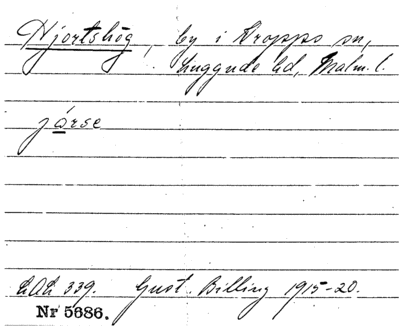 Hjortshög, by i Kropps sn,
Luggude hd, Malm. l.
járse
LAL 339. Gust. Billing 1915-20.
Nr 5686.